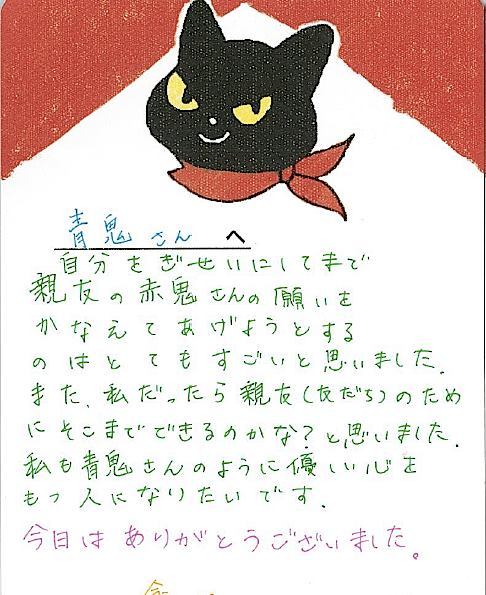 青鬼さんへ
自分をぎせいにしてまで
親友の赤鬼さんの願いを
かなえてあげようとする
のはとてもすごいと思いました。
また、私だったら親友(友だち)のため
にそこまでできるのかな?と思いました。
私も青鬼さんのように優しい心を
もつ人になりたいです。
今日はありがとうございました。